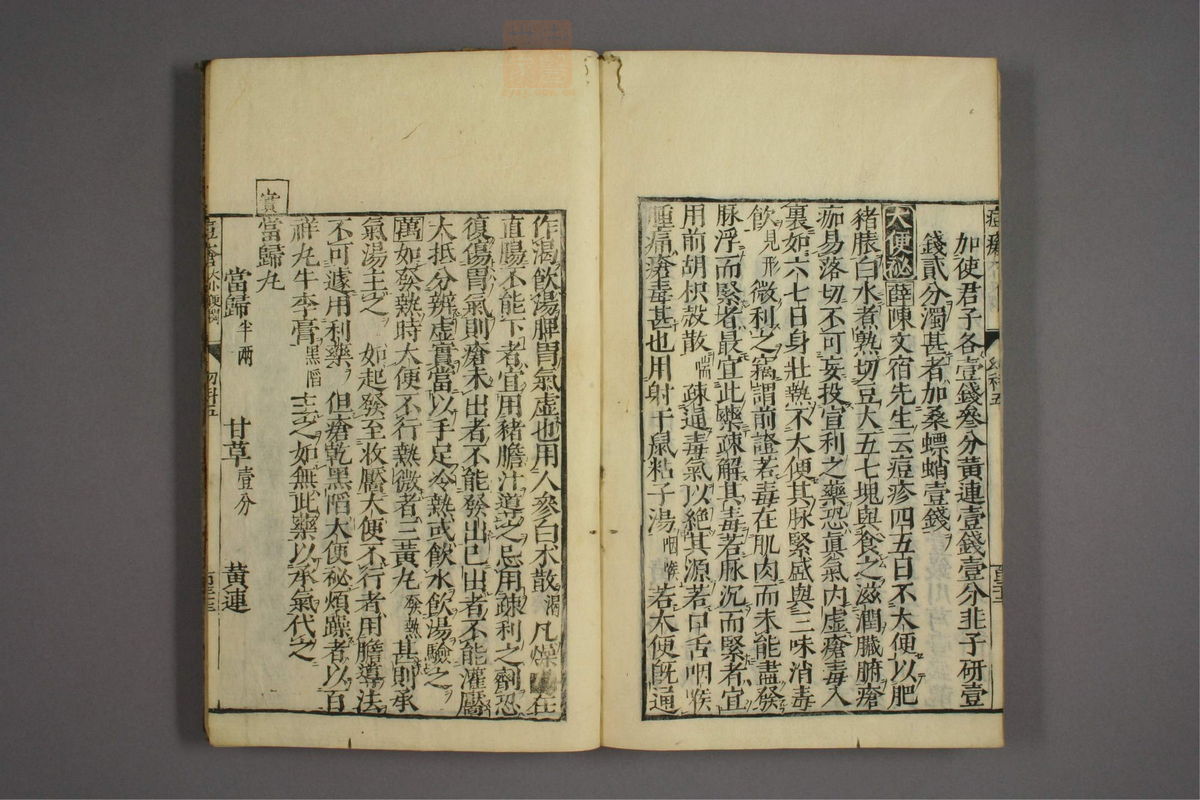 加使君子各壹錢叄分黃連壹錢壹分韭子研壹
錢貳分濁甚者加桑螵蛸壹錢
大便祕 薛陳文宿先生云痘疹四五日不大便以肥
豬膘白水煮熟切豆大五七塊與食之滋潤臟腑瘡
痂易落切不可妄投宣利之藥恐眞氣内虛瘡毒入
裏如六七日身壯熱不大便其脉緊盛與三味消毒
飲見形微利之竊謂前證若毒在肌肉而未能盡發
脉浮而緊者最宜此藥疎解其毒若脉沉而緊者宜
用前胡枳殼散喘疎通毒氣以絶其源若口舌咽喉
腫痛瘡毒甚也用射干鼠粘子湯咽喉若大便旣通
作渴飲湯脾胃氣虛也用人參白朮散渴凡燥在
直腸不能下者宜用豬膽汁導之忌用疎利之劑恐
復傷胃氣則瘡未出者不能發出已出者不能灌靨
大抵分辨虛實當以手足冷熱或飲水飲湯驗之
萬如發熱時大便不行熱微者三黃丸發熱甚則承
氣湯主之 如起發至收靨大便不行者用膽導法
不可遽用利藥 但瘡乾黑陷大便祕煩躁者以百
祥丸牛李膏黑陷主之如無此藥以承氣代之
賞當歸丸
當歸半兩 甘草壹分 黃連
痘瘡大小便 幼科五